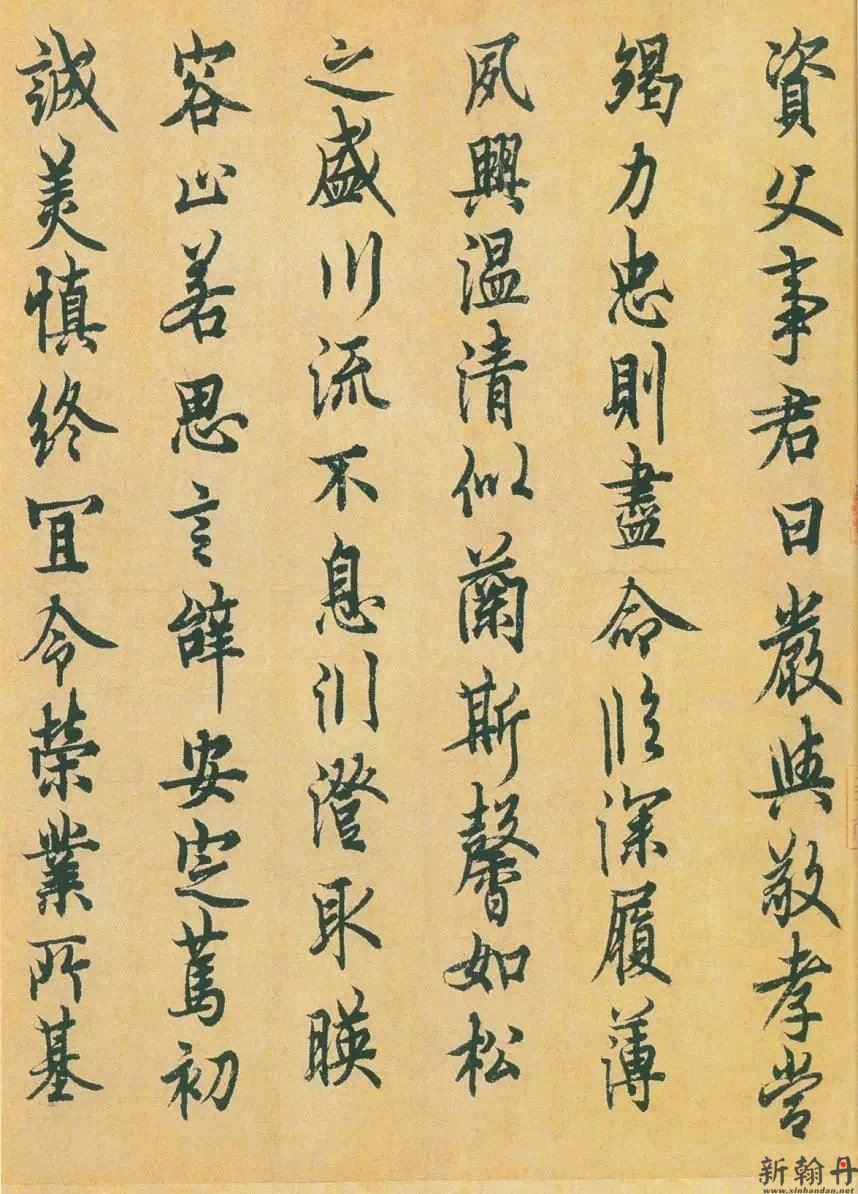 資父事君曰嚴與敬孝當
竭力忠則盡命臨深履薄
夙興温清似蘭斯馨如松
之盛川流不息淵澄取暎
容止若思言辭安定篤初
誠美慎終宜令榮業所基
新翰丹
www.xinhandan.net